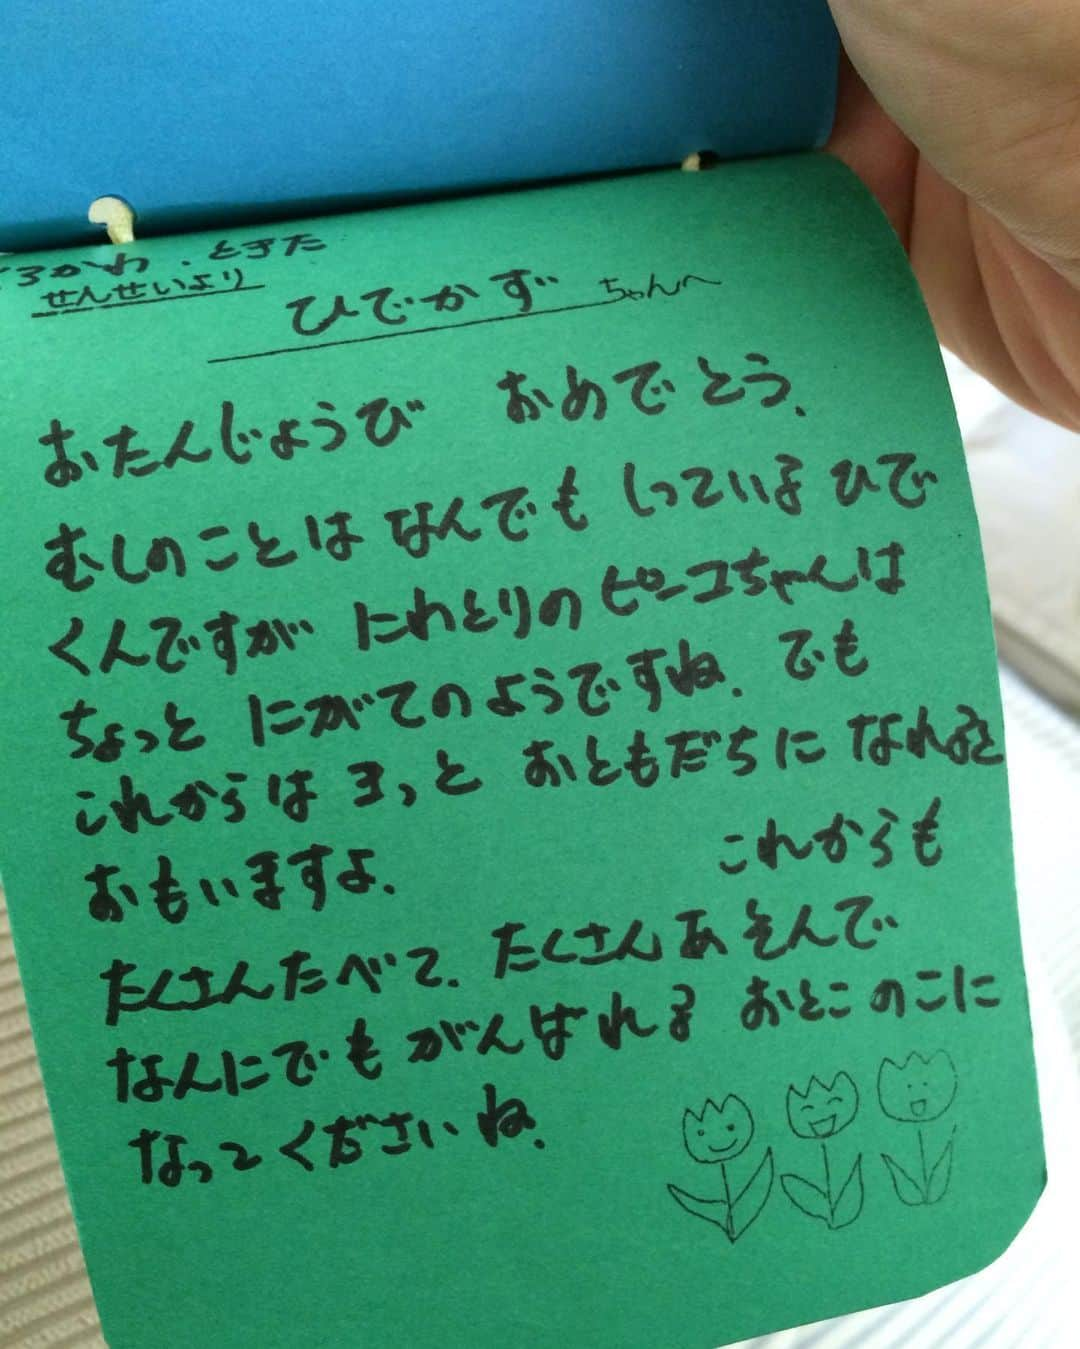 ろかわ・ときた
せんせいより
ひでかずちゃんへ
おたんじょうび おめでとう、
むしのことは なんでも しっている ひで
くんですが にわとりの ピーコちゃんは
ちょっと にがてのようですね、でも
これからは きっと おともだちに なれると
おもいますよ、 これからも
たくさんたべて、たくさんあそんで
なんにでも がんばれる おとこのこに
なってくださいね、